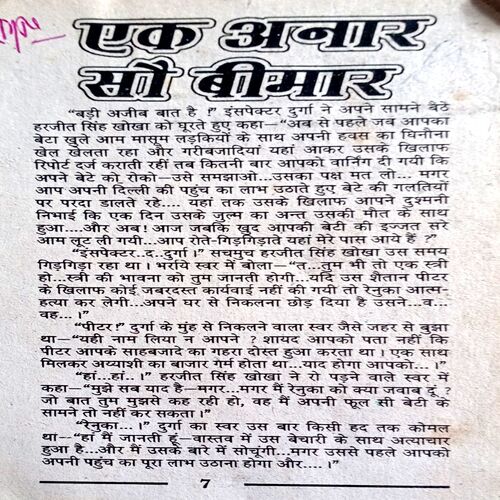 एक अनार
सौ बीमार
“बड़ी अजीब बात है !” इंसपेक्टर दुर्गा ने अपने सामने बैठे
हरजीत सिंह खोखा को घूरते हुए कहा—“अब से पहले जब आपका
बेटा खुले आम मासूम लड़कियों के साथ अपनी हवस का घिनौना
खेल खेलता रहा और गरीबजादियां यहां आकर उसके खिलाफ
रिपोर्ट दर्ज कराती रहीं तब कितनी बार आपको वार्निंग दी गयी कि
अपने बेटे को रोको—उसे समझाओ...उसका पक्ष मत लो... मगर
आप अपनी दिल्ली की पहुंच का लाभ उठाते हुए बेटे की गलतियों
पर परदा डालते रहे.... यहां तक उसके खिलाफ आपने दुश्मनी
निभाई कि एक दिन उसके जुल्म का अन्त उसकी मौत के साथ
हुआ....और अब! आज जबकि खुद आपकी बेटी की इज्जत सरे
आम लूट ली गयी...आप रोते-गिड़गिड़ाते यहां मेरे पास आये हैं ?”
“इंसपेक्टर..द..दुर्गा।” सचमुच हरजीत सिंह खोखा उस समय
गिड़गिड़ा रहा था। भर्राये स्वर में बोला—“त...तुम भी तो एक स्त्री
हो...स्त्री की भावना को तुम जानती होगी...यदि उस शैतान पीटर
के खिलाफ कोई जबरदस्त कार्यवाई नहीं की गयी तो रेनुका आत्म-
हत्या कर लेगी...अपने घर से निकलना छोड़ दिया है उसने...व...
वह...।”
“पीटर!” दुर्गा के मुंह से निकलने वाला स्वर जैसे जहर से बुझा
था—“यही नाम लिया न आपने ? शायद आपको पता नहीं कि
पीटर आपके साहबजादे का गहरा दोस्त हुआ करता था। एक साथ
मिलकर अय्याशी का बाजार गर्म होता था...याद होगा आपको...।”
“हां...हां.. ।” हरजीत सिंह खोखा ने रो पड़ने वाले स्वर में
कहा—“मुझे सब याद है—मगर...मगर मैं रेनुका को क्या जवाब दूं ?
जो बात तुम मुझसे कह रही हो, वह मैं अपनी फूल सी बेटी के
सामने तो नहीं कर सकता।”
“रेनुका...।” दुर्गा का स्वर उस बार किसी हद तक कोमल
था--“हां मैं जानती हूं—वास्तव में उस बेचारी के साथ अत्याचार
हुआ है...और मैं उसके बारे में सोचूंगी...मगर उससे पहले आपको
अपनी पहुंच का पूरा लाभ उठाना होगा और....।”
7